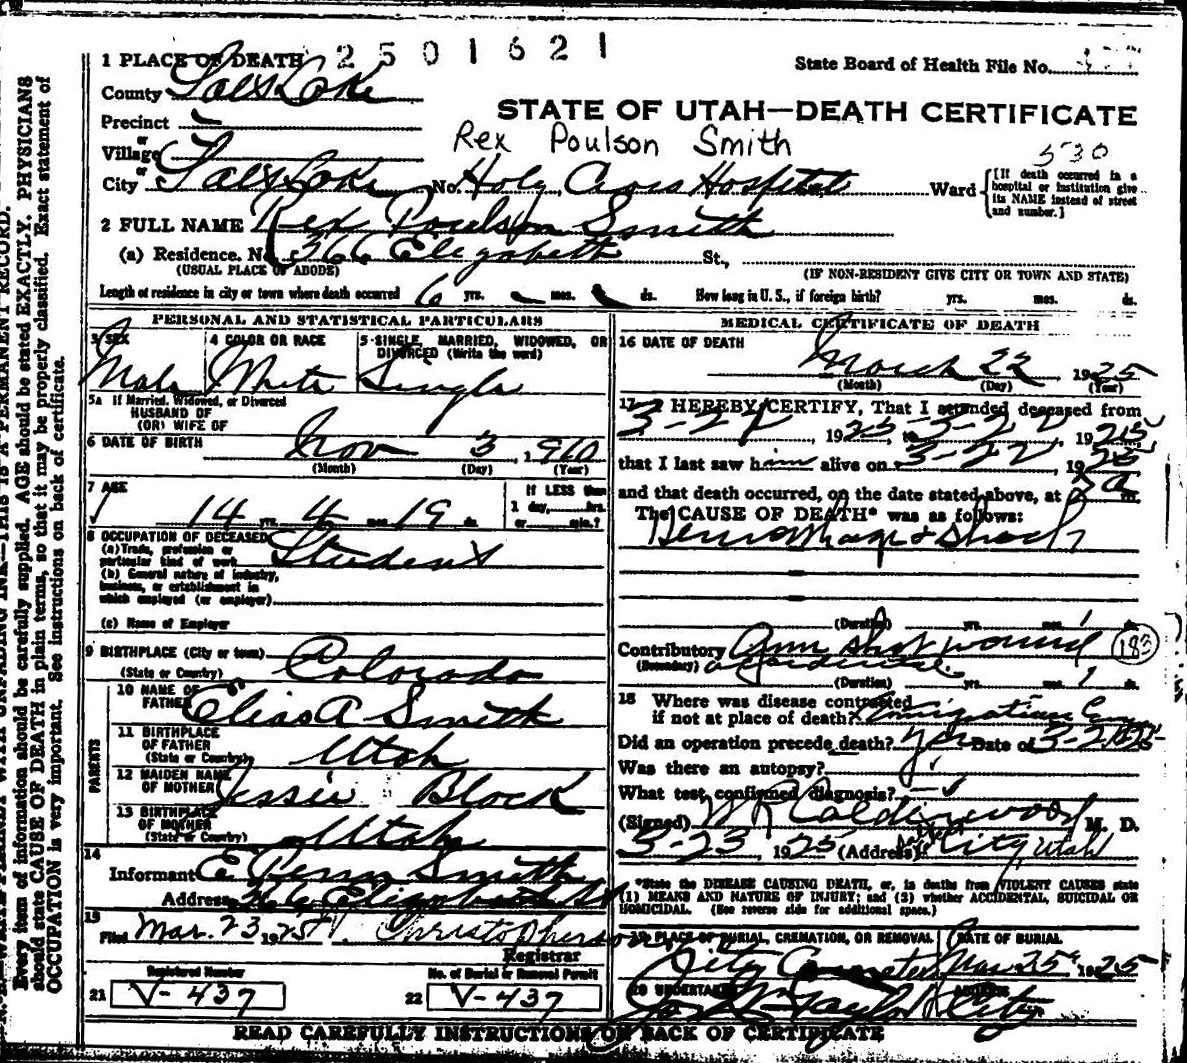 2501621
1 PLACE OF DEATH
State Board of Health File No.
County Salt Lake
STATE OF UTAH—DEATH CERTIFICATE
Precinct
Rex Poulson Smith
or
Village
530
or
City Salt Lake No. Holy Cross Hospital Ward
[If death occurred in a hospital or institution give its NAME instead of street and number.]
2 FULL NAME Rex Poulson Smith
(a) Residence. No. 366 Elizabeth St.,
(USUAL PLACE OF ABODE) (IF NON-RESIDENT GIVE CITY OR TOWN AND STATE)
Length of residence in city or town where death occurred 6 yrs. — mos. ds. How long in U. S., if foreign birth? yrs. mos. ds.
PERSONAL AND STATISTICAL PARTICULARS
3 SEX 4 COLOR OR RACE 5 SINGLE, MARRIED, WIDOWED, OR DIVORCED (Write the word)
Male White Single
5a If Married, Widowed, or Divorced
HUSBAND OF
(OR) WIFE OF
6 DATE OF BIRTH Nov 3 1910
(Month) (Day) (Year)
7 AGE 14 yrs. 4 mos. 19 ds.
If LESS than
1 day, hrs.
or min.?
8 OCCUPATION OF DECEASED
(a) Trade, profession or
particular kind of work Student
(b) General nature of industry,
business, or establishment in
which employed (or employer)
(c) Name of Employer
9 BIRTHPLACE (City or town)
(State or Country) Colorado
PARENTS
10 NAME OF
FATHER Elias A Smith
11 BIRTHPLACE
OF FATHER
(State or Country) Utah
12 MAIDEN NAME
OF MOTHER Jessie Block
13 BIRTHPLACE
OF MOTHER
(State or Country) Utah
14
Informant E. Smith
Address 366 Elizabeth St
15
Filed Mar. 23 1925 Christopherson
Registrar
Registered Number No. of Burial or Removal Permit
21 V-437 22 V-437
MEDICAL CERTIFICATE OF DEATH
16 DATE OF DEATH
March 22 1925
(Month) (Day) (Year)
17 I HEREBY CERTIFY, That I attended deceased from
3-22, 1925, to 3-22, 1925,
that I last saw him alive on 3-22, 1925
and that death occurred, on the date stated above, at m.
The CAUSE OF DEATH* was as follows:
Hemorrhage & Shock
(Duration) yrs. mos. 1 ds.
Contributory Gun shot wound
(183)
(Secondary) accidental
(Duration) yrs. mos. 1 ds.
18 Where was disease contracted
if not at place of death? Emigration
Did an operation precede death? yes Date of
Was there an autopsy?
What test confirmed diagnosis?
(Signed) Calderwood M. D.
3-23, 1925 (Address) City, Utah
*State the DISEASE CAUSING DEATH, or, in deaths from VIOLENT CAUSES state
(1) MEANS AND NATURE OF INJURY; and (2) whether ACCIDENTAL, SUICIDAL OR
HOMICIDAL. (See reverse side for additional space.)
19 PLACE OF BURIAL, CREMATION, OR REMOVAL DATE OF BURIAL
City Cemetery Mar 25 1925
20 UNDERTAKER ADDRESS
Taylor City
READ CAREFULLY INSTRUCTIONS ON BACK OF CERTIFICATE
WRITE PLAINLY WITH UNFADING INK—THIS IS A PERMANENT RECORD.
Every item of information should be carefully supplied. AGE should be stated EXACTLY. PHYSICIANS
should state CAUSE OF DEATH in plain terms, so that it may be properly classified. Exact statement of
OCCUPATION is very important. See instructions on back of certificate.